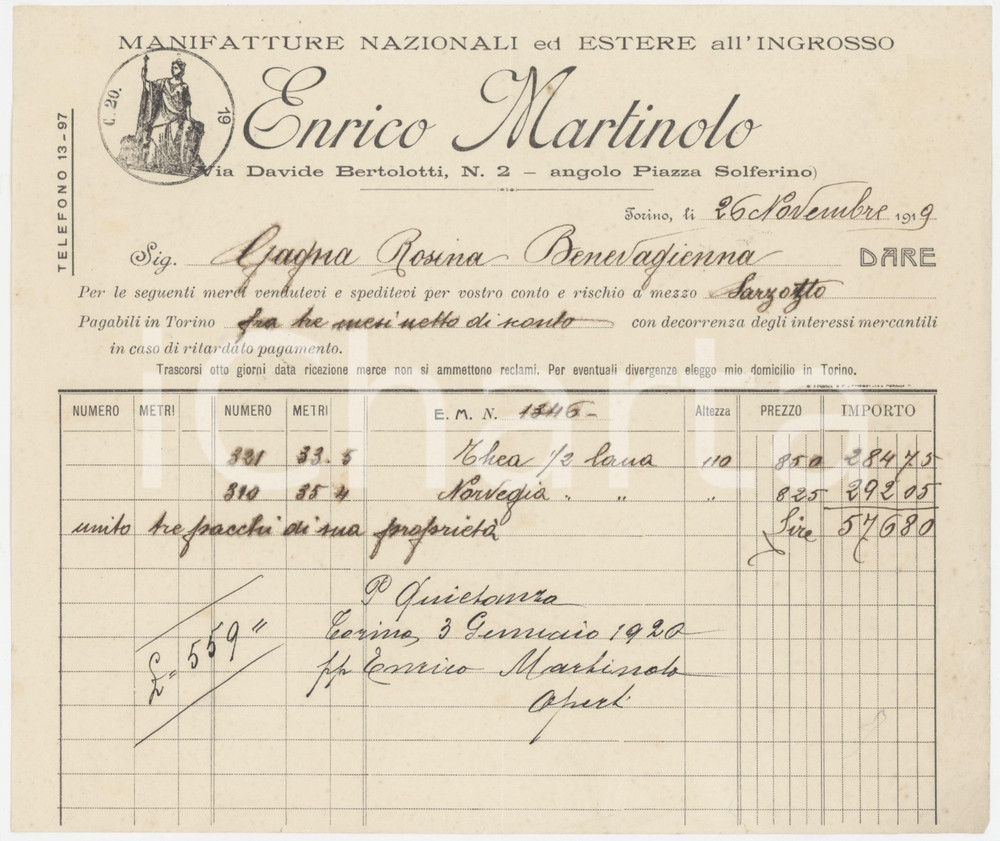 MANIFATTURE NAZIONALI ed ESTERE all'INGROSSO
C. 20. 19
Enrico Martinolo
TELEFONO 13-97
Via Davide Bertolotti, N. 2 - angolo Piazza Solferino)
Torino, li 26 Novembre 1919
Sig. Gagna Rosina Benevagienna DARE
Per le seguenti merci vendutevi e speditevi per vostro conto e rischio a mezzo Sarzotto
Pagabili in Torino fra tre mesi netto di sconto con decorrenza degli interessi mercantili
in caso di ritardato pagamento.
Trascorsi otto giorni data ricezione merce non si ammettono reclami. Per eventuali divergenze eleggo mio domicilio in Torino.
NUMERO METRI NUMERO METRI E. M. N. 1346- Altezza PREZZO IMPORTO
321 33.5 Thea 1/2 lana 110 850 28475
310 35 4 Norvegia " " " 825 29205
unito tre pacchi di sua proprietà Lire 57680
P Quietanza
£" 559 " Torino, 3 Gennaio 1920
pp Enrico Martinolo
iCharta